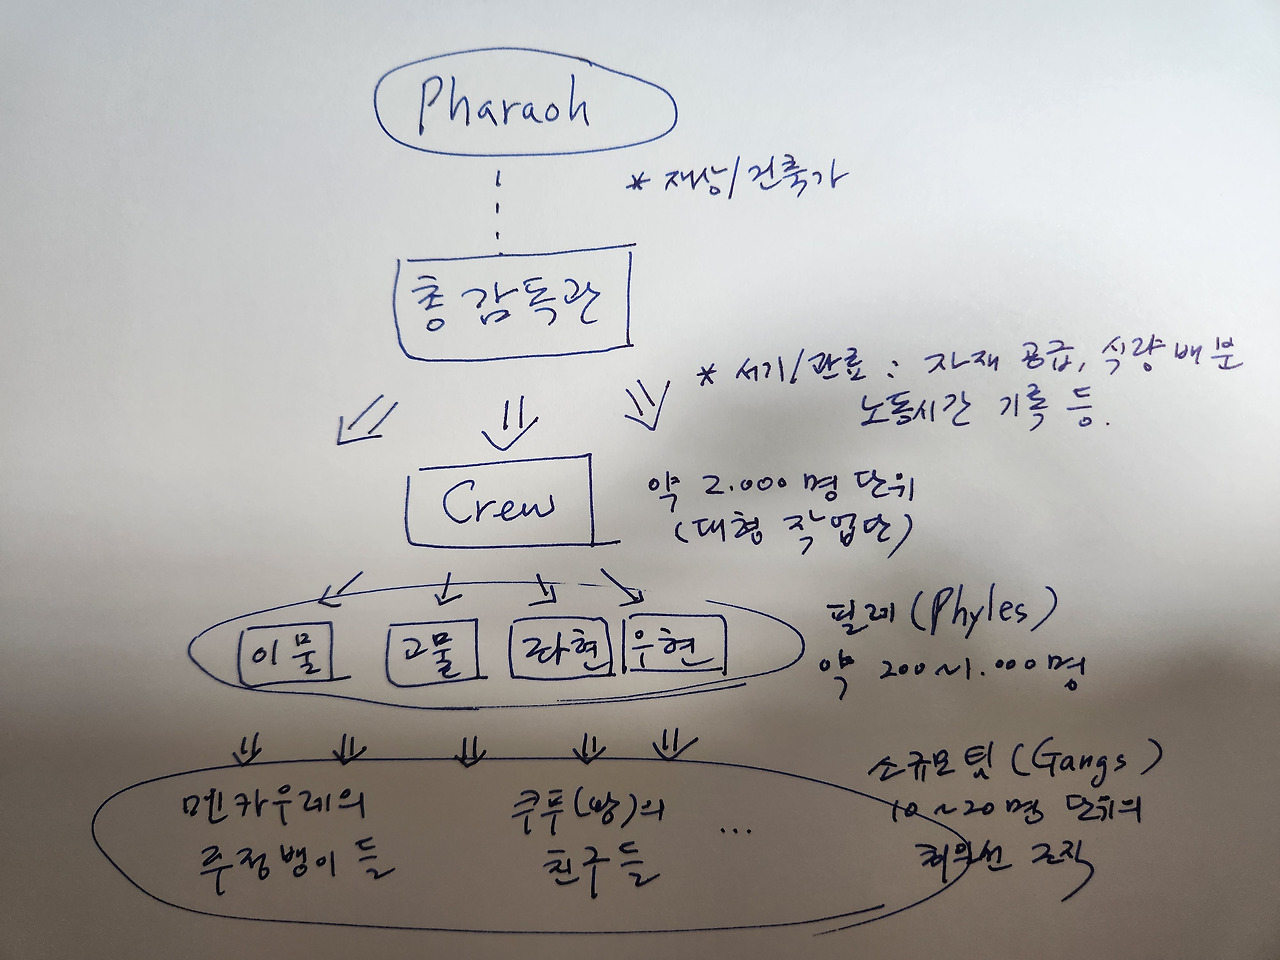 Pharaoh
* 재상/건축가
총감독관
* 서기/관료 : 자재 공급, 식량 배분
노동시간 기록 등.
Crew
약 2.000명 단위
(대형 작업단)
이물
고물
좌현
우현
필레 (Phyles)
약 200~1.000명
소규모팀 (Gangs)
10~20명 단위의
최일선 조직
멘카우레의
주정뱅이들
쿠푸(왕)의
친구들
...